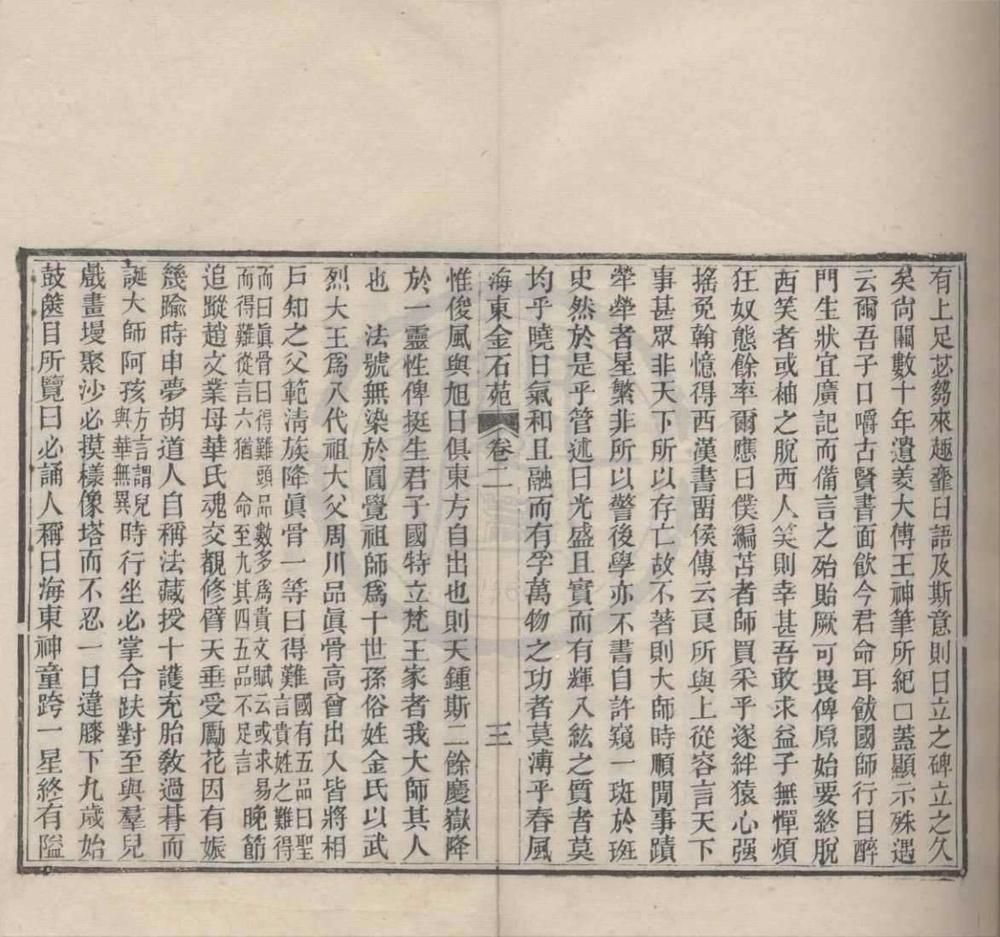 有上足苾蒭來趣虀臼語及斯意則曰立之碑立之久
矣尙闕數十年遺美大傅王神筆所紀口蓋顯示殊遇
云爾吾子口嚼古賢書面飮今君命耳飫國師行目醉
門生狀宜廣記而備言之殆貽厥可畏俾原始要終脫
西笑者或袖之脫西人笑則幸甚吾敢求益子無憚煩
狂奴態餘率爾應曰僕編苫者師買采乎遂絆猿心强
搖兎翰憶得西漢書畱侯傳云良所與上從容言天下
事甚眾非天下所以存亡故不著則大師時順閒事蹟
犖犖者星繁非所以警後學亦不書自許窺一斑於班
史然於是乎管述曰光盛且實而有輝八紘之質者莫
均乎曉日氣和且融而有孚萬物之功者莫溥乎春風
海東金石苑 卷二 三
惟俊風與旭日俱東方自出也則天鍾斯二餘慶嶽降
於一靈性俾挺生君子國特立梵王家者我大師其人
也 法號無染於圓覺祖師爲十世孫俗姓金氏以武
烈大王爲八代祖大父周川品眞骨高曾出入皆將相
戶知之父範淸族降眞骨一等曰得難國有五品曰聖
而曰眞骨曰得難言貴姓之難得
文賦云或求易
而得難從言六頭品數多爲貴
猶 命至九其四五品不足言晚節
追蹤趙文業母華氏魂交覩修臂天垂受䕼花因有娠
幾踰時申夢胡道人自稱法藏授十護充胎敎過朞而
誕大師阿孩方言謂兒與華無異時行坐必掌合趺對至與羣兒
戲畫墁聚沙必摸樣像塔而不忍一日違膝下九歲始
鼓篋目所覽曰必誦人稱曰海東神童跨一星終有隘